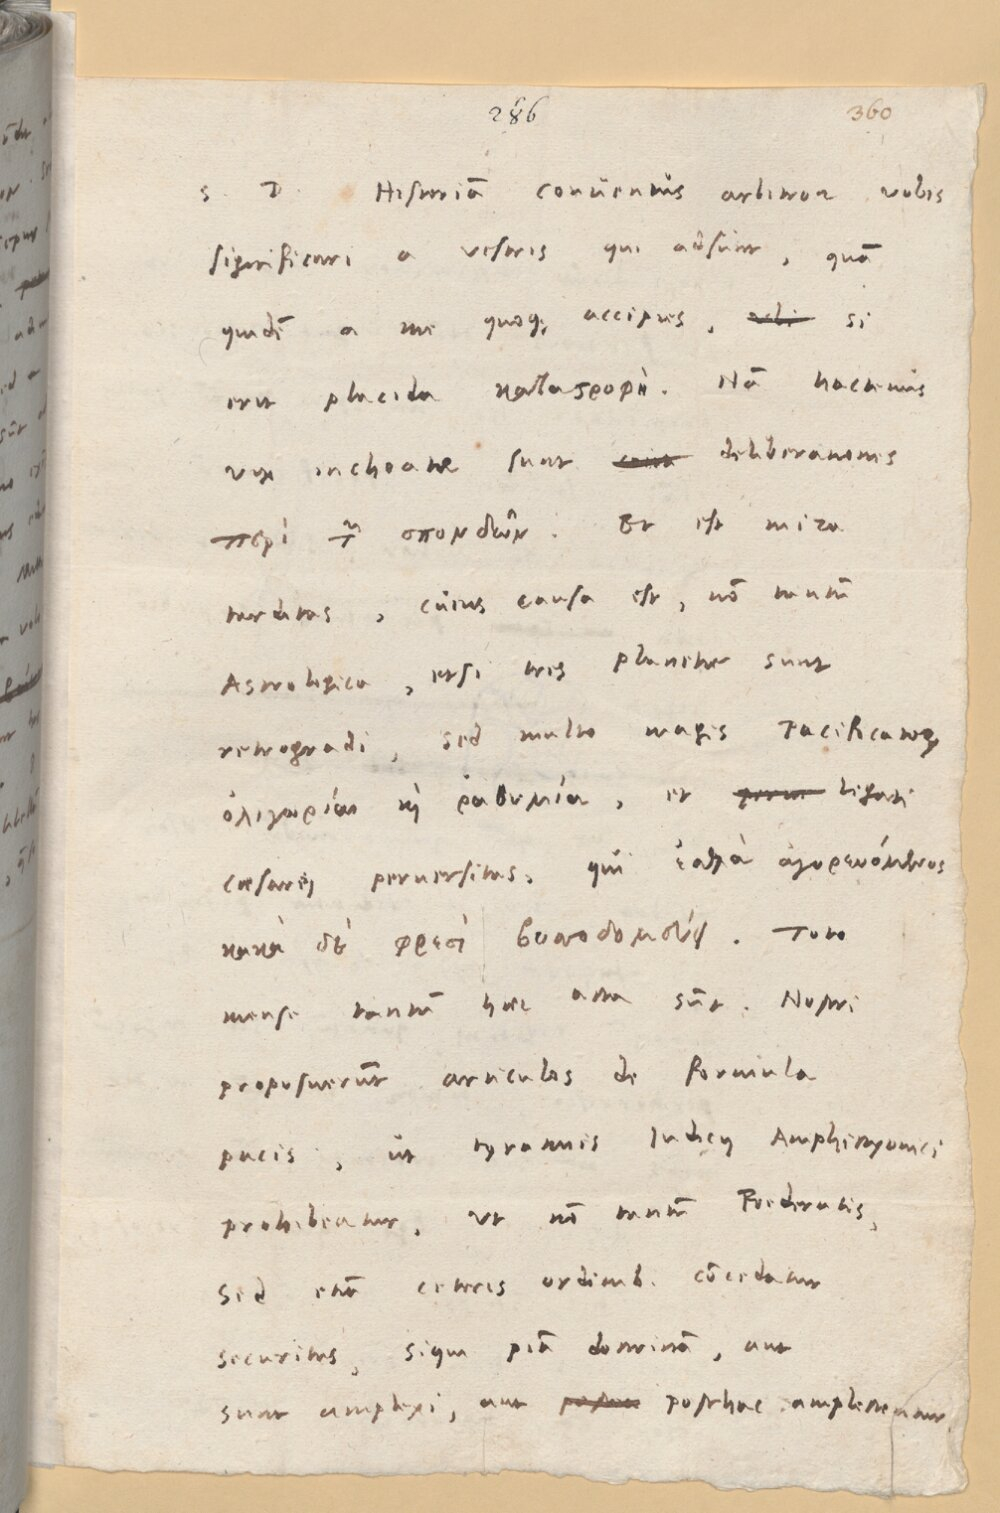 286 360
S. D. Historiā conuentus arbitror vobis
significari a vestris qui adsunt, quā
quidē a me quoq; accipies, si
erit placida καταστροφή. Nā hactenus
vix inchoatæ sunt deliberationes
περὶ τ͂ σπονδῶν. Et est mira
tarditas, cuius causa est, nō tantū
Astrologica, etsi tres planetæ sunt
retrogradi, sed multo magis Pacificatorū
ὀλιγωρία καὶ ῥαθυμία, et legati
cæsarei peruersitas, qui ἐσθλὰ ἀγορευόμενος
κακὰ δὲ φρεσὶ βυσοδομεύει. Toto
mense tantū hæc acta sūt. Nostri
proposuerūt articulos de formula
pacis, ut tyrannis Iudicij Amphictyonici
prohibeatur, vt nō tantū Foederatis,
sed etiā ceteris ordinib. cōcedatur
securitas, siqui piā doctrinā, aut
sunt amplexi, aut posthac amplectantur